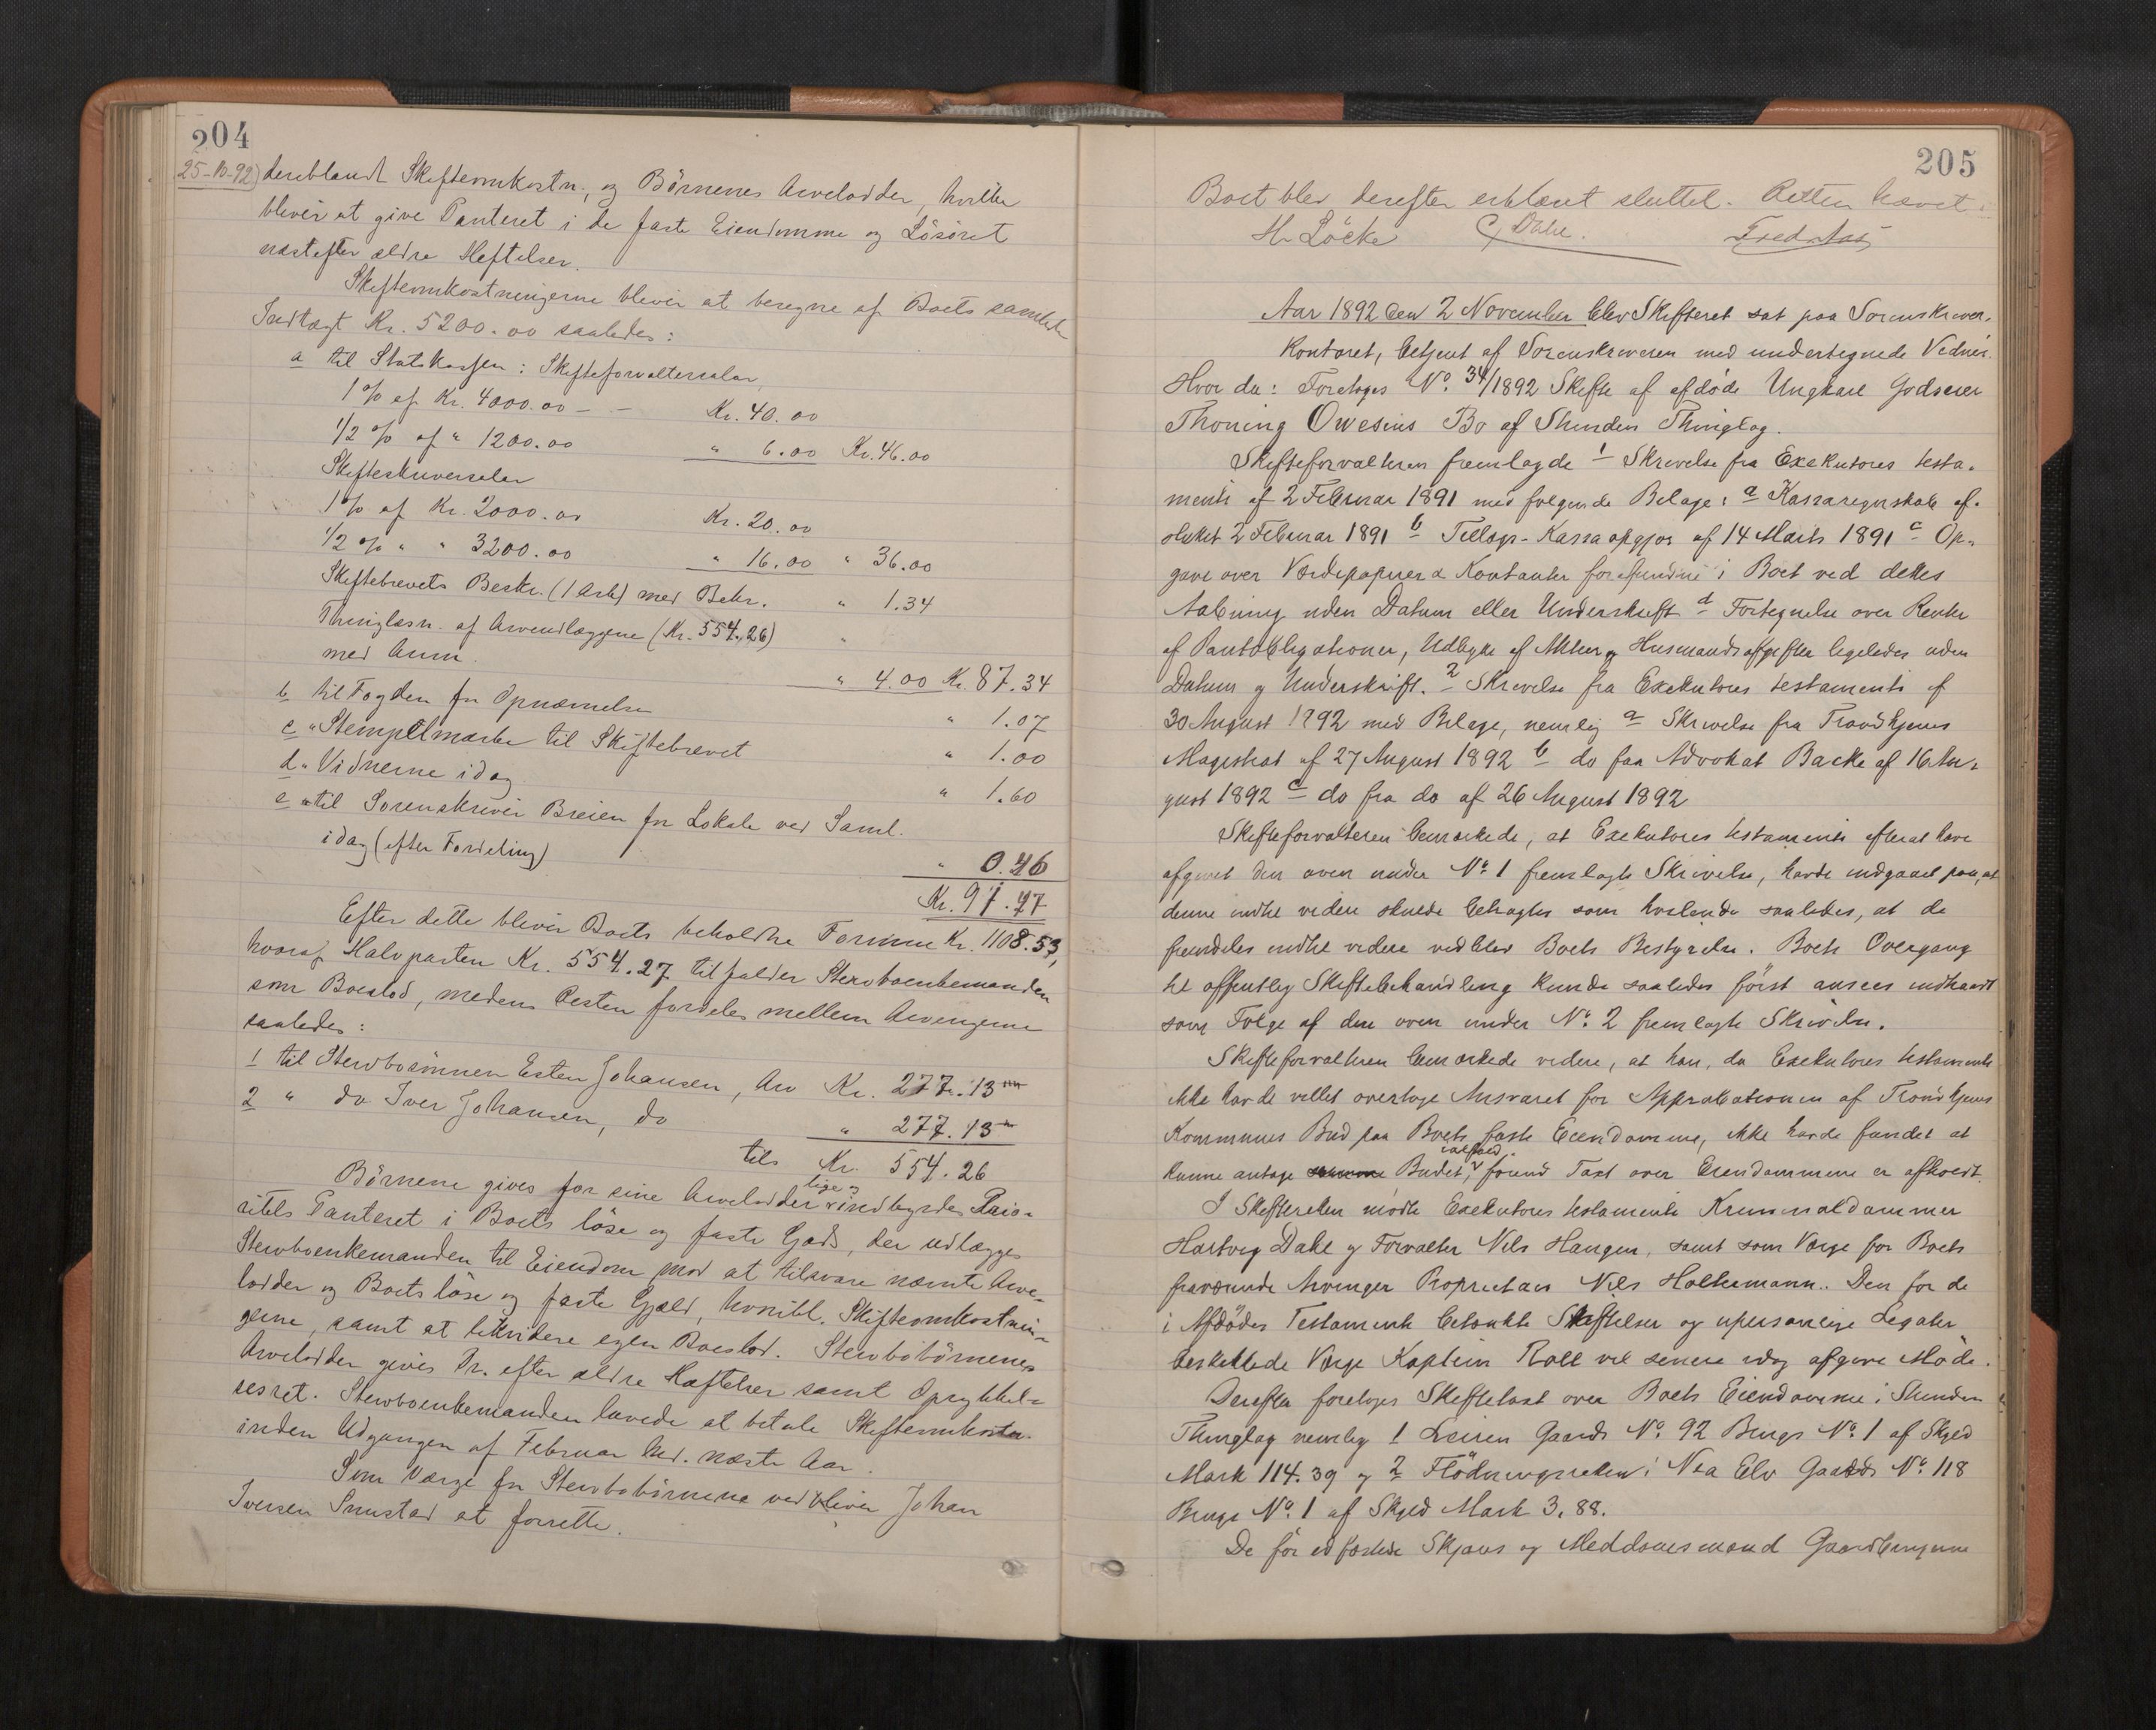 204
25-10-92) dereblandt Skifteomkostn., og Börnenes Arvelodder, hvilke
bliver at give Panteret i de faste Eiendomme og Lösöret
næstefter ældre Heftelser.
Skifteomkostningerne bliver at beregne af Boets samlede
Indtægt Kr. 5200.00 saaledes:
a til Statskassen: Skifteforvaltersalær
1 % af Kr. 4000.00 - - Kr. 40.00
1/2 % af " 1200.00 " 6.00 Kr. 46.00
Skifteskriversalær
1 % af Kr. 2000.00 Kr. 20.00
1/2 % " " 3200.00 " 16.00 " 36.00
Skiftebrevets Beskr. (1 Ark) med Bekr. " 1.34
Thinglæsn. af Arveudlæggene (Kr. 554.26) "
med Anm. " 4.00 Kr. 87.34
b til Fogden for Opnævnelse " 1.07
c " Stempelmærke til Skiftebrevet " 1.00
d " Vidnerne idag " 1.60
e " til Sorenskriver Breien for Lokale ved Saml.
idag (efter Fordeling) " 0.46
Kr. 91.47
Efter dette bliver Boets beholdne Formue Kr. 1108.53,
hvoraf Halvparten Kr. 554.27 tilfalder Stervboenkemanden
som Boeslod, medens Resten fordeles mellem Arvingerne
saaledes:
1 til Stervbosönnen Esten Johansen, Arv Kr. 277.13
2 " do Iver Johansen, do " 277.13
tils Kr. 554.26
Börnene gives for sine Arvelodder lige og indbyrdes Prio-
ritets Panteret i Boets löse og faste Gods, der udlægges
Stervboenkemanden til Eiendom mod at tilsvare nævnte Arve-
lodder og Boets löse og faste Gjæld, heriibl. Skifteomkostnin-
gerne, samt at bekvidere egen Boeslod. Stervbobörnenes
Arvelodder gives Pr. efter ældre Hæftelser samt Oprykkel-
sesret. Stervboenkemanden lovede at betale Skifteomkostn.
inden Udgangen af Februar Md. næste Aar.
Som Værge for Stervbobörnene vedbliver Johan
Iversen Smustad at forrette.
205
Boet blev derefter erklæret sluttet. Retten hævet.
H. Löcke C. Dahl. Fredr.
Aar 1892 den 2 November blev Skifteret sat paa Sorenskriver-
kontoret, betjent af Sorenskriveren med undertegnede Vidner.
Hvor da: Foretoges No. 34/1892 Skifte af afdøde Ungkarl Godseier
Thoning Owesens Bo af Strinden Thinglag.
Skifteforvalteren fremlagde 1 Skrivelse fra Exekutores testa-
menti af 2 Februar 1891 med følgende Bilage: a Kassaregnskab af-
sluttet 2 Februar 1891 b Tillægs-Kassaopgjør af 14 Marts 1891 c Op-
gave over Værdipapirer & Kontanter forefundne i Boet ved dettes
Aabning uden Datum eller Underskrift d Fortegnelse over Renter
af Pantobligationer, Udbytte af Aktier og Husmandsafgifter ligeledes uden
Datum og Underskrift. 2 Skrivelse fra Exekutores testamenti af
30 August 1892 med Bilage, nemlig a Skrivelse fra Trondhjems
Magistrat af 27 August 1892 b do fra Advokat Backe af 16 Au-
gust 1892 c do fra do af 26 August 1892
Skifteforvalteren bemærkede, at Exekutores testamenti efterat have
afgivet den oven under No. 1 fremlagte Skrivelse, havde indgaaet paa, at
denne indtil videre skulde betragtes som hvilende saaledes, at de
fremdeles indtil videre vedblev Boets Bestyrelse. Boets Overgang
til offentlig Skiftebehandling kunde saaledes först ansees indtraadt
som Følge af den oven under No. 2 fremlagte Skrivelse.
Skifteforvalteren bemærkede videre, at han, da Exekutores testamenti
ikke havde villet overtage Ansvaret for Approbationen af Trondhjems
Kommunes Bud paa Boets faste Eiendomme, ikke havde fundet at
kunne antage Budet, ialfald förend Taxt over Eiendommene er afholdt.
I Skifteretten mødte Exekutores testamenti Kriminaldommer
Hartvig Dahl og Forvalter Nils Haugen, samt som Værge for Boets
fraværende Arvinger Proprietær Nils Holtermann. Den for de
i Afdödes Testamente betænkte Stiftelser og upersonlige Legater
beskikkede Værge Kaptein Roll vil senere idag afgive Möde.
Derefter foretoges Skiftetaxt over Boets Eiendomme i Strinden
Thinglag nemlig 1 Leiren Gaards No. 92 Brugs No. 1 af Skyld
Mark 114.39 og 2 Flödningsretten i Nea Elv Gaards No. 118
Brugs No. 1 af Skyld Mark 3.88.
De för edfæstede Skjöns og Meddomsmænd Gaardbrugerne